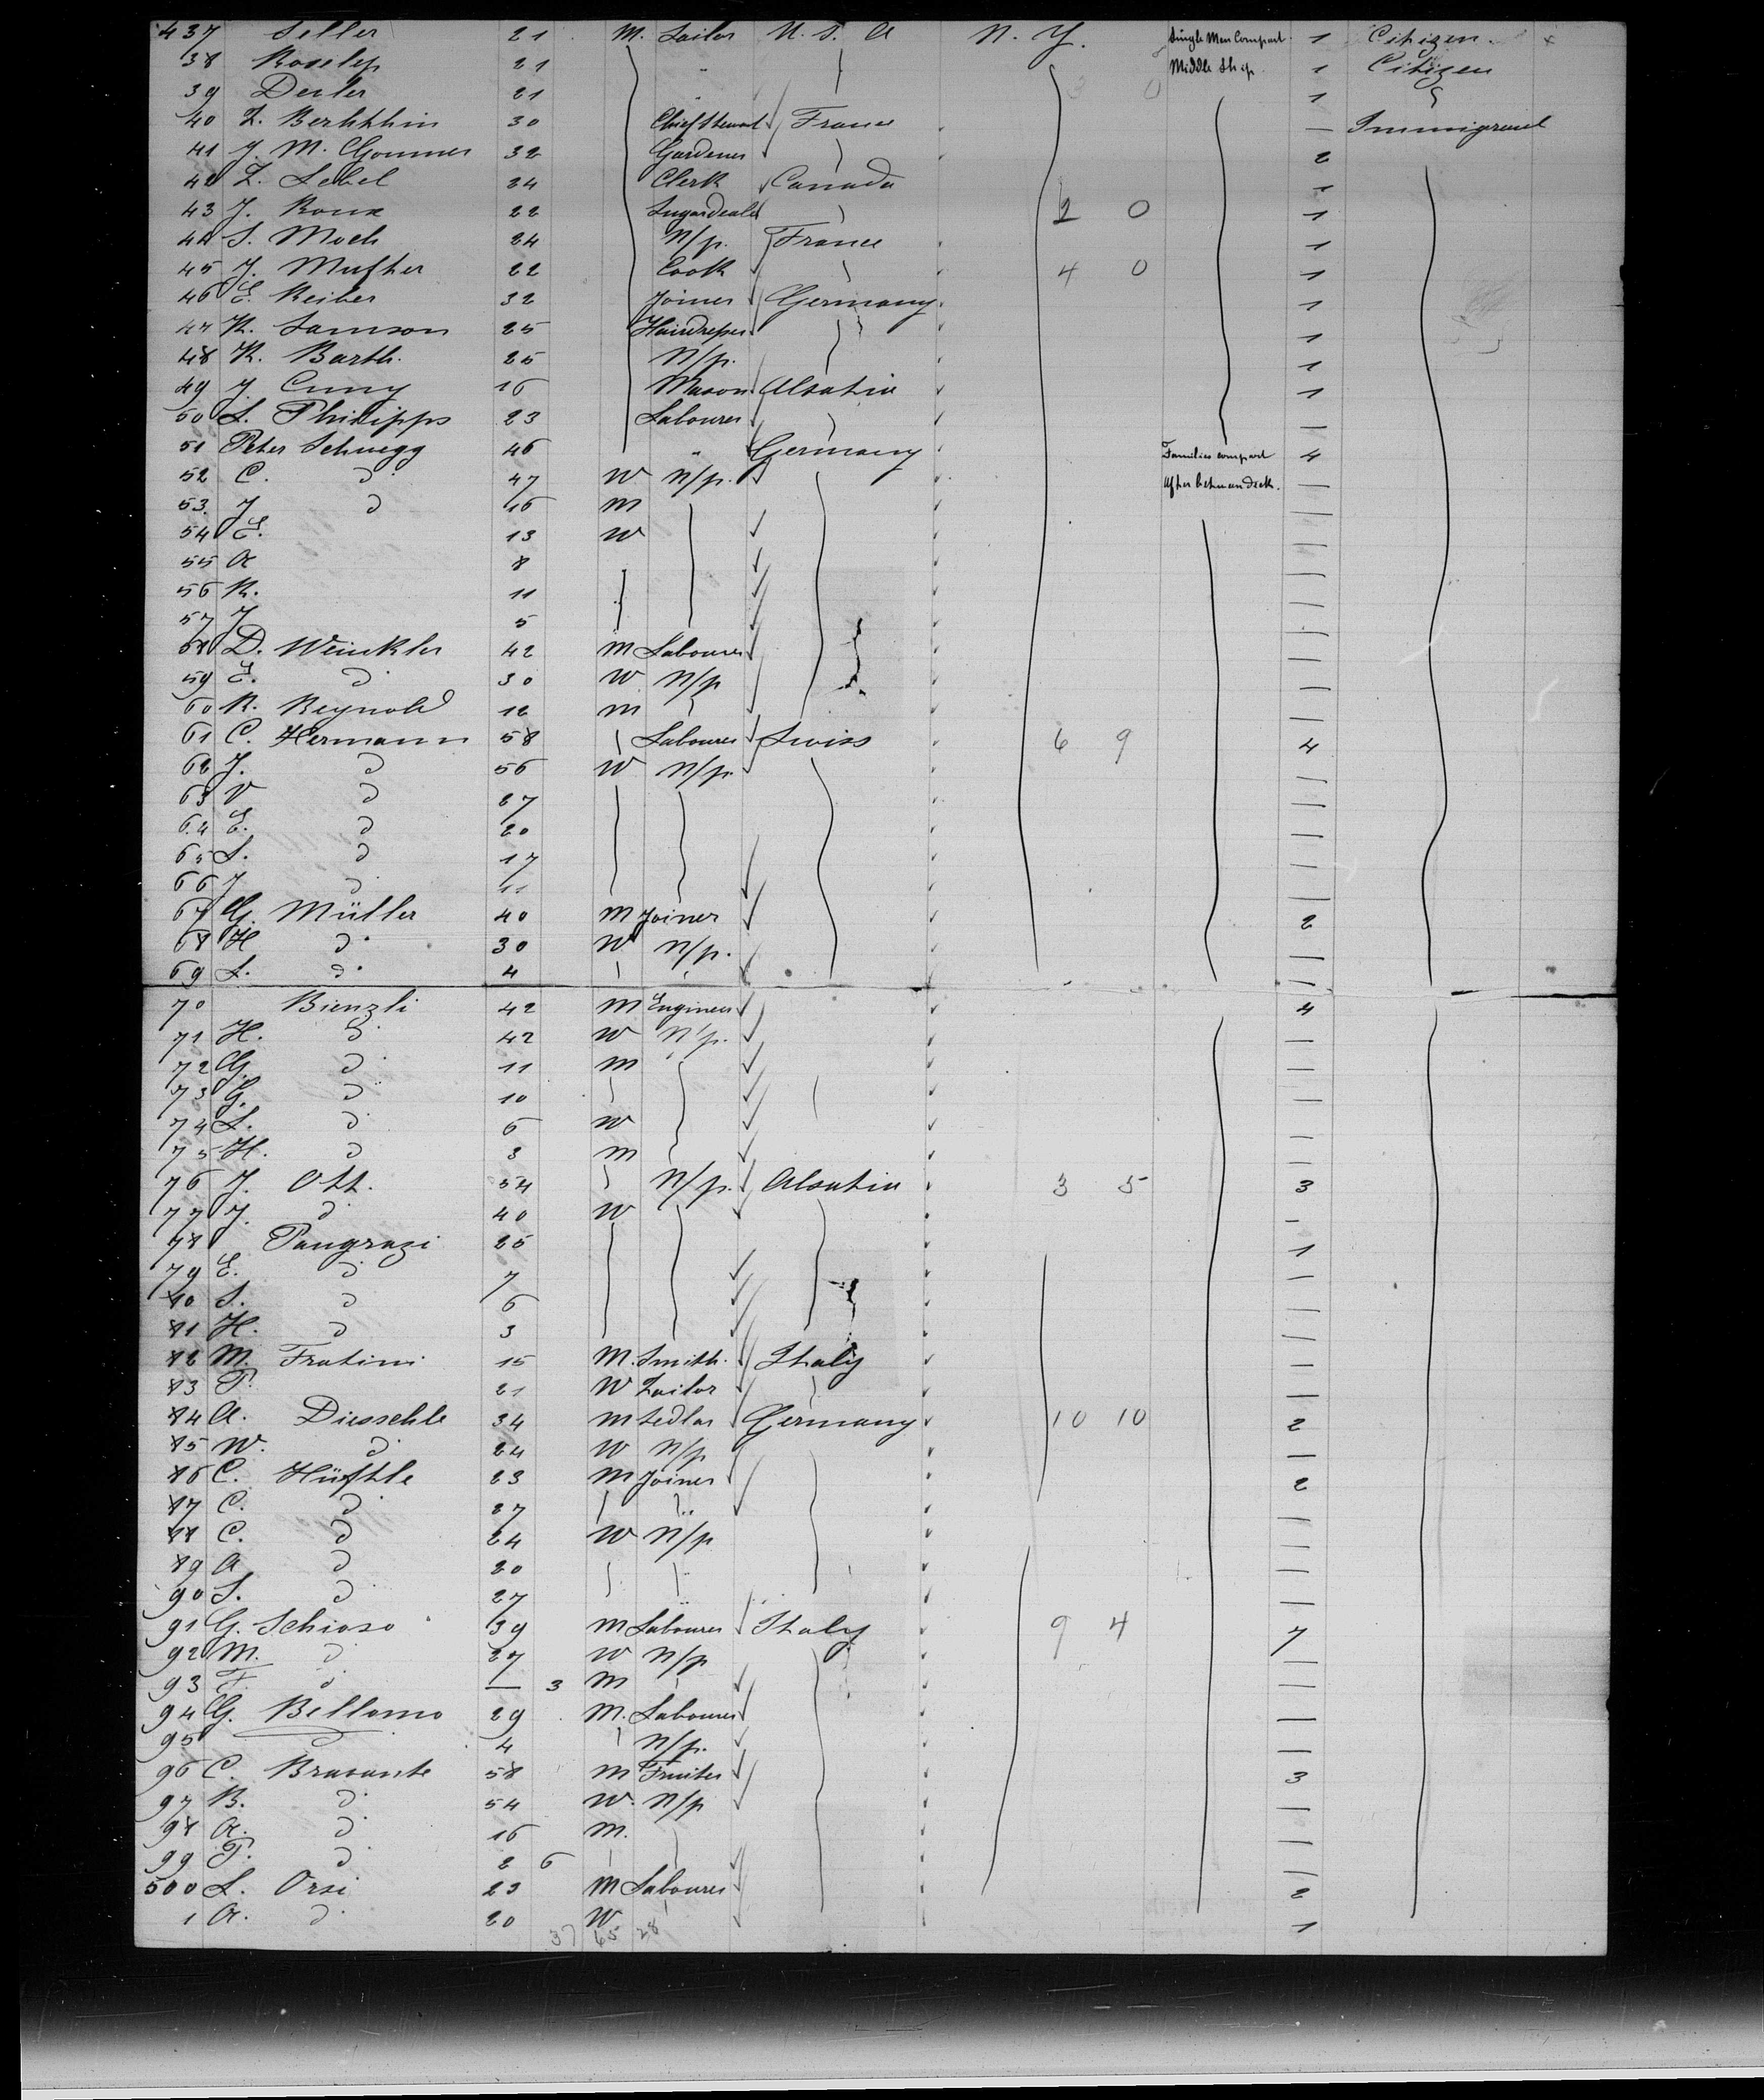 437 Seller 21 M. Sailor U. S. A N. Y. Single Men Compart. 1 Citizen.
38 Roselep 21 " Middle Ship 1 Citizen
39 Deiler 21 1
40 L. Berhthin 30 Chief Steward France — Immigrant
41 J. M. Gonner 32 Gardener 2
42 L. Lebel 24 Clerk Canada 1
43 J. Roux 22 Sugardealer 2 0 1
44 S. Moch 24 N/p. France 1
45 J. Muther 22 Cook 4 0 1
46 E. Reiber 32 Joiner Germany 1
47 R. Samson 25 Hairdresser 1
48 R. Barth. 25 N/p. 1
49 J. Cuny 16 Mason Alsatia 1
50 L. Philipps 23 Labourer —
51 Peter Schuegg 46 " Germany Families compart 4
52 C. d 47 W N/p. After betweendeck. —
53. J d 16 m —
54 E. 13 W —
55 A 8 —
56 R. 11 —
57 J 5 —
58 D. Weinkler 42 m Labourer —
59 E. d 30 W N/p —
60 R. Reynold 12 m —
61 C. Hermann 58 Labourer Swiss 6 9 4
62 J. d 56 W N/p. —
63 V d 27 —
64 E. d 20 —
65 S. d 17 —
66 J d 11 —
67 G. Müller 40 m Joiner 2
68 H d 30 W N/p. —
69 L. d 4 —
70 Bienzli 42 m Engineer 4
71 H. d 42 W N/p. —
72 G. d 11 m —
73 G. d 10 —
74 L. d 6 W —
75 H. d 3 m —
76 J. Ott. 54 N/p. Alsatia 3 5 3
77 J. d 40 W -
78 Pangrazi 25 1
79 E. d 7 —
80 S. d 6 —
81 H. d 3 —
82 M. Fratini 15 M. Smith. Italy —
83 P. 21 W Tailor —
84 A. Diesschle 34 m Sedlar Germany 10 10 2
85 W. d 24 W N/p —
86 C. Hüfthle 23 m Joiner 2
87 C. d 27 " —
88 C. d 24 W N/p —
89 A d 20 —
90 S. d 27 —
91 G. Schioso 39 m Labourer Italy 9 4 7
92 M. d 27 W N/p —
93 F. d — 3 m —
94 G. Bellomo 29 M. Labourer —
95 4 N/p. —
96 C. Bravante 58 m Fruiter 3
97 B. d 54 W. N/p —
98 A. d 16 m. —
99 P. d 2 6 —
500 L. Orsi 23 m Labourer 2
1 A. d 20 W 1
37 65 28